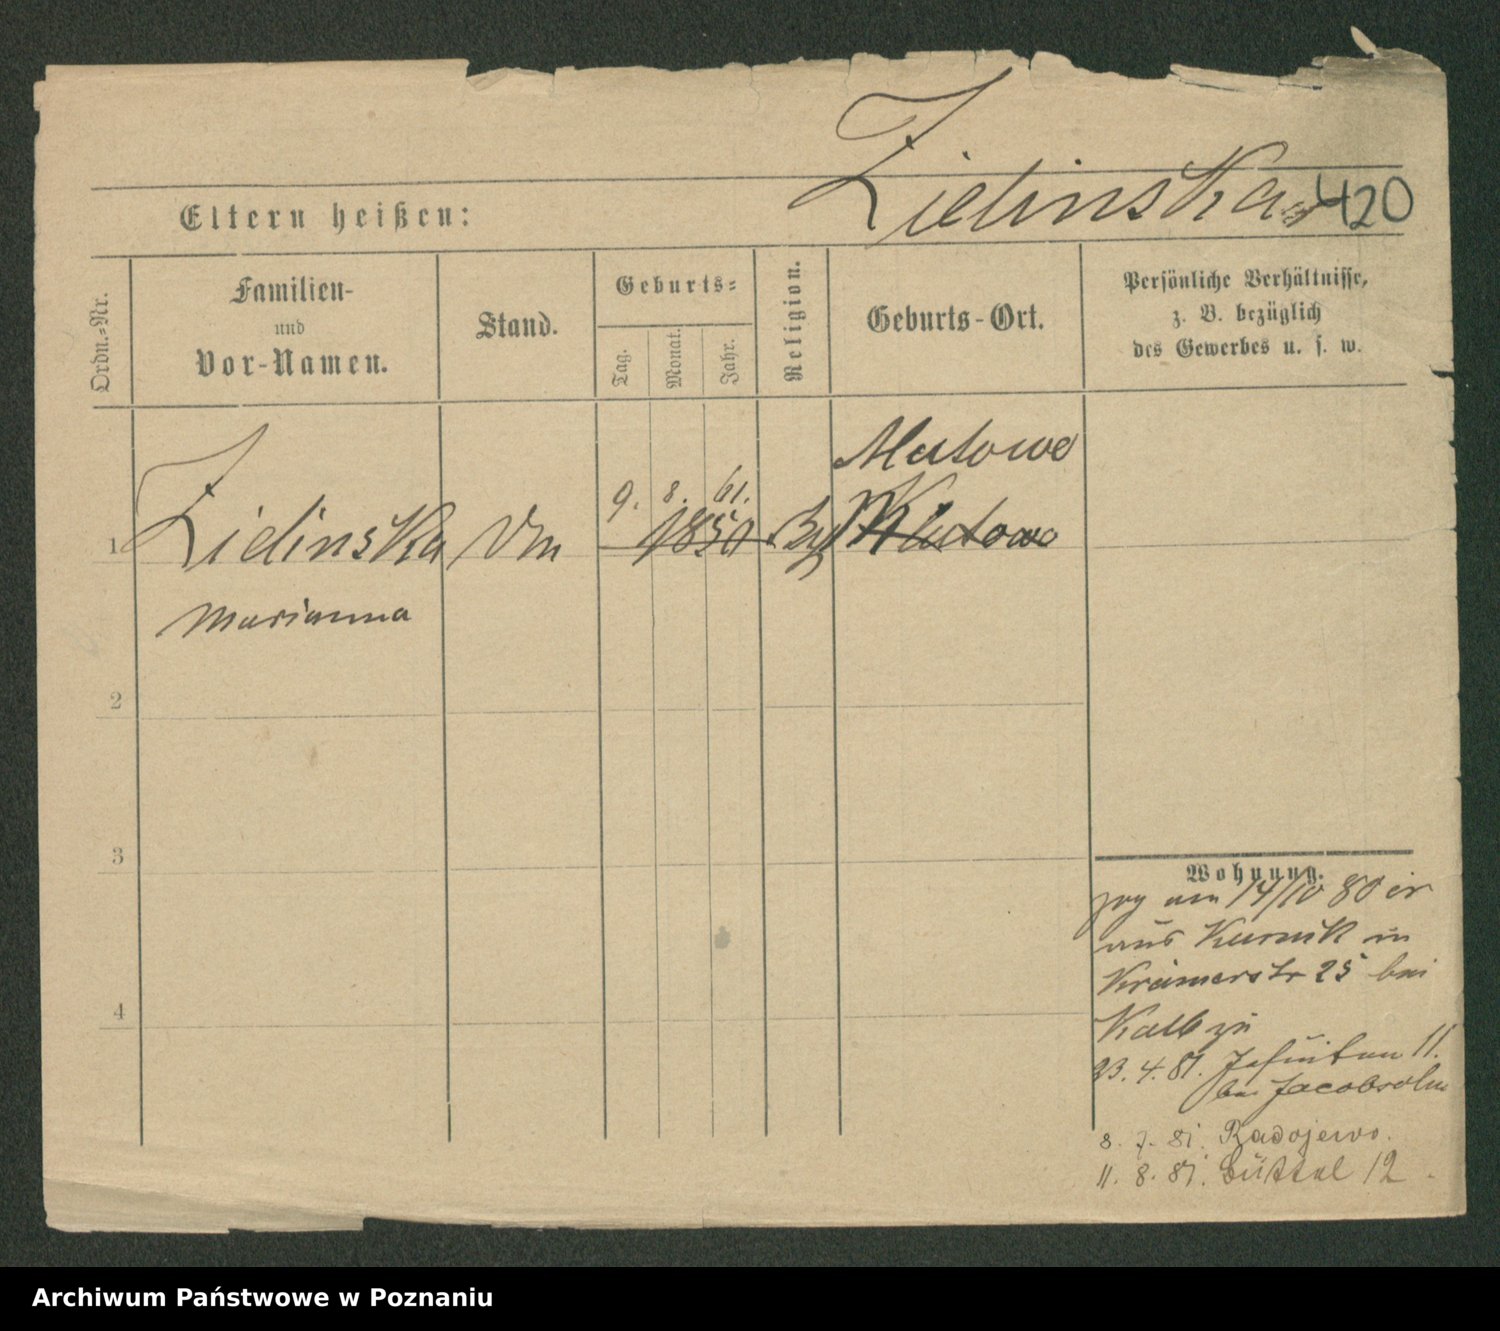 Zielinska
420
Eltern heißen:
Ordn.-Nr.
Familien-
und
Vor-Namen.
Stand.
Geburts-
Tag.
Monat.
Jahr.
Religion.
Geburts-Ort.
Persönliche Verhältnisse,
z. B. bezüglich
des Gewerbes u. s. w.
1
Zielinska
Marianna
9. 8. 61.
1850
2
3
4
Wohnung.
zog am 14/10 80 er
aus Kurnik in
Krämerstr 25 bei
Kalb zu
23. 4. 81. Jesuiten 11.
bei Jacobsohn
8. 7. 81. Radojewo.
11. 8. 81. Büttel 12
Archiwum Państwowe w Poznaniu